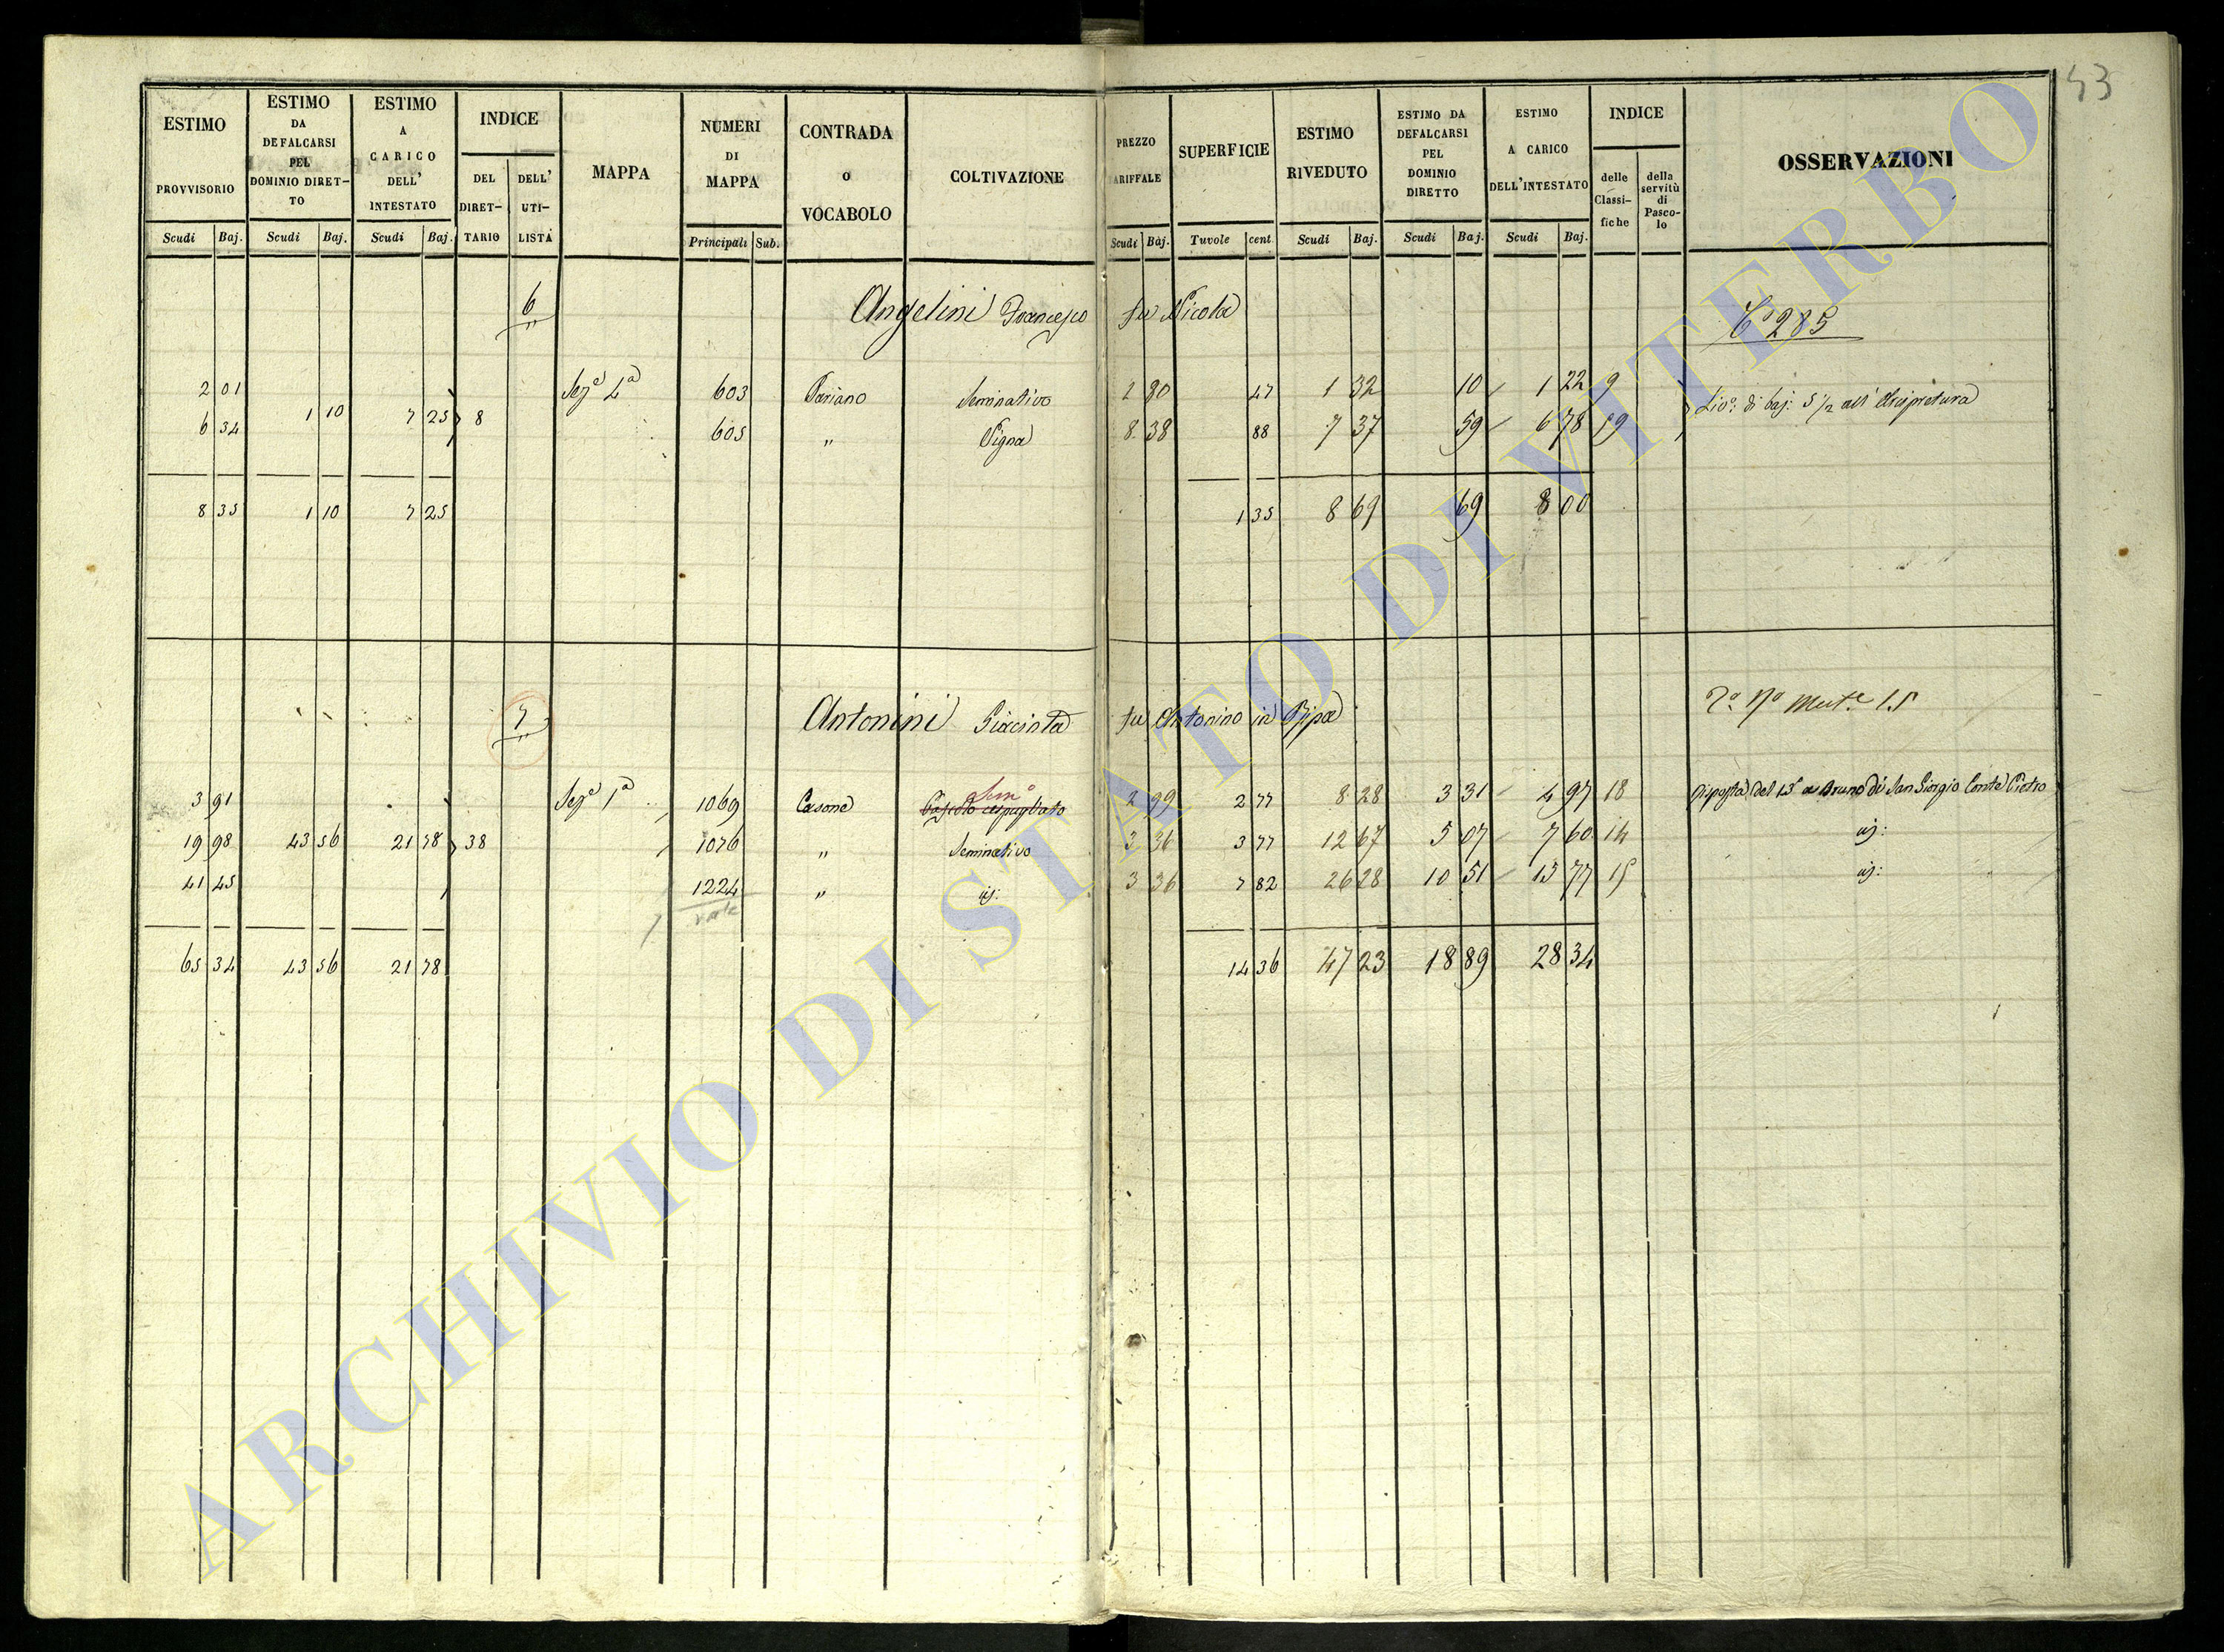 43
ESTIMO PROVVISORIO | ESTIMO DA DEFALCARSI PEL DOMINIO DIRET-TO | ESTIMO A CARICO DELL' INTESTATO | INDICE DEL DIRET-TARIO | DELL' UTI-LISTA | MAPPA | NUMERI DI MAPPA | CONTRADA O VOCABOLO | COLTIVAZIONE | PREZZO TARIFFALE | SUPERFICIE | ESTIMO RIVEDUTO | ESTIMO DA DEFALCARSI PEL DOMINIO DIRETTO | ESTIMO A CARICO DELL'INTESTATO | INDICE delle Classi-fiche | della servitù di Pasco-lo | OSSERVAZIONI
Scudi | Baj. | Scudi | Baj. | Scudi | Baj. | Principali | Sub. | Scudi | Baj. | Tavole | cent. | Scudi | Baj. | Scudi | Baj. | Scudi | Baj.
6 Angelini Francesco fu Nicola 285
2 01 Sez.e 4a 603 Pariano Seminativo 2 80 47 1 32 10 1 22 9
1 10 7 25 8 di baj: 5 1/2 all'
6 34 605 " Vigna 8 38 88 7 37 59 6 78 19
8 35 1 10 7 25 1 35 8 69 69 8 00
7 Antonini Giacinta fu Antonino in Ripa 15
Sem.o
3 91 Sez.e 1a 1069 Casone Pascolo cespugliato 2 99 2 77 8 28 3 31 4 97 18 Risposta del 15 a Bruno di San Giorgio Conte Pietro
19 98 43 56 21 78 38 1076 " Seminativo 3 36 3 77 12 67 5 07 7 60 14 id:
41 45 1224 " id: 3 36 7 82 26 28 10 51 15 77 15 id:
65 34 43 56 21 78 14 36 47 23 18 89 28 34
ARCHIVIO DI STATO DI VITERBO